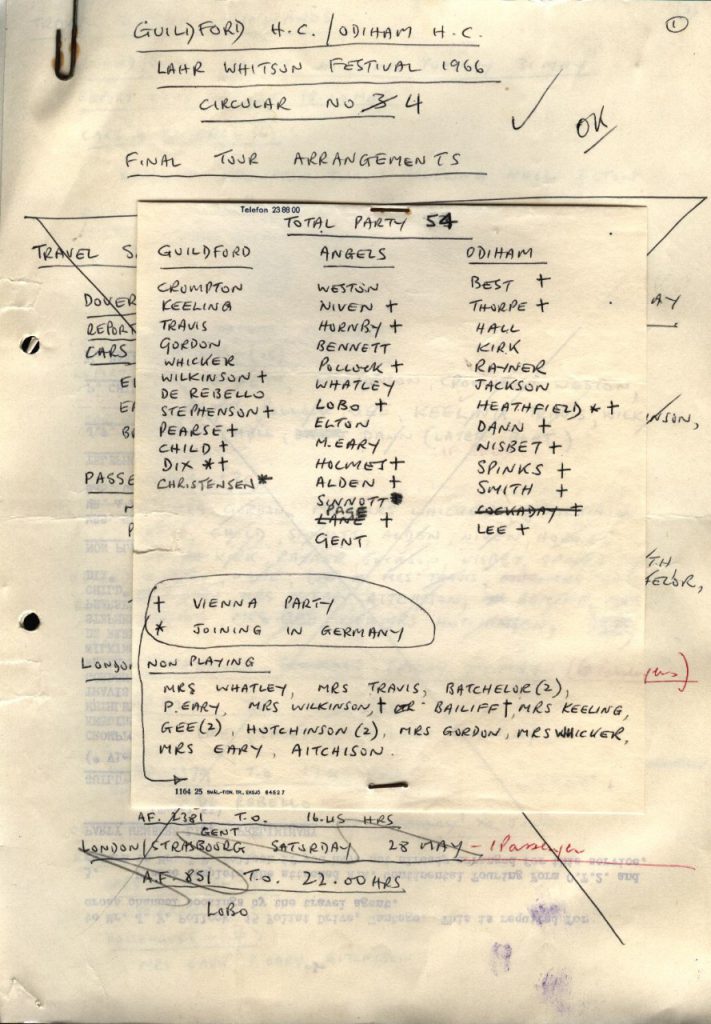 1
GUILDFORD H.C. / ODIHAM H.C.
LAHR WHITSUN FESTIVAL 1966
CIRCULAR NO 3 4
OK
FINAL TOUR ARRANGEMENTS
Telefon 23 88 00
TOTAL PARTY 54
TRAVEL
GUILDFORD ANGELS ODIHAM
CROMPTON WESTON BEST +
DOVER KEELING NIVEN + THORPE + AY
REPORT TRAVIS HORNBY + HALL
CARS GORDON BENNETT KIRK
WHICKER POLLOCK + RAYNER
WILKINSON + WHATLEY JACKSON
DE REBELLO LOBO + HEATHFIELD * +
STEPHENSON + ELTON DANN + INSON,
PEARSE + M.EARY NISBET +
CHILD + HOLMES + SPINKS +
PASSE DIX * + ALDEN + SMITH +
CHRISTENSEN * SINNOTT * COCKADAY +
PAGE
LANE + LEE +
GENT
TH
+ VIENNA PARTY
* JOINING IN GERMANY
LONDON NON PLAYING
MRS WHATLEY, MRS TRAVIS, BATCHELOR (2),
P.EARY, MRS WILKINSON, + BAILIFF +, MRS KEELING,
GEE (2), HUTCHINSON (2), MRS GORDON, MRS WHICKER,
MRS EARY, AITCHISON.
1164 25
AF. 2381 T.O. 16.45 HRS
GENT
LONDON/STRASBOURG SATURDAY 28 MAY - 1 Passenger
A.F. 851 T.O. 22.00 HRS
LOBO